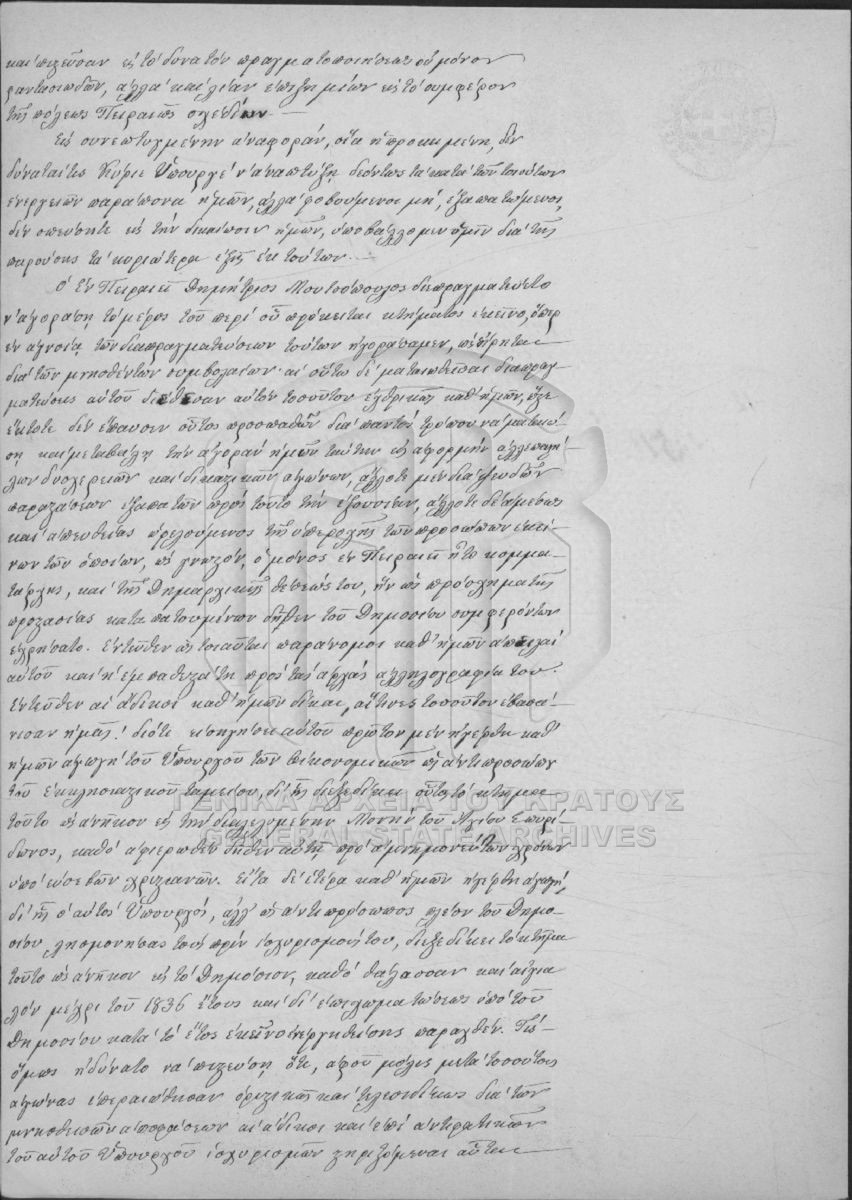 καὶ πιστεῦσαν εἰς τὸ δυνατὸν πραγματοποιήσεως οὐ μόνον
φαντασιωδῶν, ἀλλὰ καὶ λίαν ἐπιζημίων εἰς τὸ συμφέρον
τῆς πόλεως Πειραιῶς σχεδίων. —
Εἰς συνεπτυγμένην ἀναφοράν, οἵα ἡ προκειμένη, δὲν
δύναταί τις Κύριε Ὑπουργέ ν' ἀναπτύξῃ δεόντως τὰ κατὰ τῶν τοιούτων
ἐνεργειῶν παράπονα ἡμῶν, ἀλλὰ φοβούμενοι μή, ἐξαπατώμενος,
δὲν σπεύσητε εἰς τὴν δικαίωσιν ἡμῶν, ὑποβάλλομεν ὑμῖν διὰ τῆς
παρούσης τὰ κυριώτερα ἑξῆς ἐκ τούτων. —
Ὁ ἐν Πειραιεῖ Δημήτριος Μουτσόπουλος διεπραγματεύετο
ν' ἀγοράσῃ τὸ μέρος τοῦ περὶ οὗ πρόκειται κτήματος ἐκεῖνο, ὅπερ
ἐν ἀγνοίᾳ τῶν διαπραγματεύσεων τούτων ἠγοράσαμεν, ὡς εἴρηται
διὰ τῶν μνησθέντων συμβολαίων· αἱ οὕτω δὲ ματαιωθεῖσαι διαπραγ-
ματεύσεις αὐτοῦ διέθεσαν αὐτὸν τοσοῦτον ἐχθρικῶς καθ' ἡμῶν, ὥστε
ἔκτοτε δὲν ἔπαυσεν οὗτος προσπαθῶν διὰ παντὸς τρόπου νὰ ματαιώ-
σῃ καὶ μεταβάλῃ τὴν ἀγορὰν ἡμῶν ταύτην εἰς ἀφορμὴν ἀλλεπαλλή-
λων δυσχερειῶν καὶ δικαστικῶν ἀγώνων, ἄλλοτε μὲν διὰ ψευδῶν
παραστάσεων ἐξαπατῶν πρὸς τοῦτο τὴν ἐξουσίαν, ἄλλοτε δὲ ἀμέσως
καὶ ἀπευθείας ὠφελούμενος τῆς ὑπεροχῆς τῶν προσώπων ἐκεί-
νων τῶν ὁποίων, ὡς γνωστόν, ὁ μόνος ἐν Πειραιεῖ ἦτο κομμα-
τάρχης, καὶ τῆς Δημαρχικῆς θέσεώς του, ἣν ὡς πρόσχημα τῆς
προστασίας καταπατουμένων δῆθεν τοῦ Δημοσίου συμφερόντων
ἐχρήσατο. Ἐντεῦθεν αἱ τοιαῦται παράνομοι καθ' ἡμῶν ἀπειλαὶ
αὐτοῦ καὶ ἡ ἐμπαθεστάτη πρὸς τὰς ἀρχὰς ἀλληλογραφία του·
ἐντεῦθεν αἱ ἄδικοι καθ' ἡμῶν δίκαι, αἵτινες τοσοῦτον ἐβασά-
νισαν ἡμᾶς! διότι εἰσηγήσει αὐτοῦ πρῶτον μὲν ἠγέρθη καθ'
ἡμῶν ἀγωγὴ τοῦ Ὑπουργοῦ τῶν Οἰκονομικῶν ὡς ἀντιπροσώπου
τοῦ ἐκκλησιαστικοῦ ταμείου, δι' ἧς διεξεδίκει οὗτος τὸ κτῆμα
τοῦτο ὡς ἀνῆκον εἰς τὴν διαλελυμένην Μονὴν τοῦ Ἁγίου Σπυρί-
δωνος, καθὸ ἀφιερωθὲν δῆθεν αὐτῇ πρὸ ἀμνημονεύτων χρόνων
ὑπὸ εὐσεβῶν χριστιανῶν. Εἶτα δὲ ἑτέρα καθ' ἡμῶν ἠγέρθη ἀγωγή,
δι' ἧς ὁ αὐτὸς Ὑπουργός, ἀλλ' ὡς ἀντιπρόσωπος πλέον τοῦ Δημο-
σίου, λησμονήσας τοὺς πρὶν ἰσχυρισμούς του, διεξεδίκει τὸ κτῆμα
τοῦτο ὡς ἀνῆκον εἰς τὸ Δημόσιον, καθὸ θάλασσαν καὶ αἰγια-
λὸν μέχρι τοῦ 1836 ἔτους καὶ δι' ἐπιχωματώσεως ὑπὸ τοῦ
Δημοσίου κατὰ τὸ ἔτος ἐκεῖνο ἐνεργηθείσης παραχθέν. Τίς
ὅμως ἠδύνατο νὰ πιστεύσῃ ὅτι, ἀφοῦ μόλις μετὰ τοσούτους
ἀγῶνας ἐπεραιώθησαν ὁριστικῶς καὶ τελεσιδίκως διὰ τῶν
μνησθεισῶν ἀποφάσεων αἱ ἄδικοι καὶ ἐπὶ ἀντιφατικῶν
τοῦ αὐτοῦ Ὑπουργοῦ ἰσχυρισμῶν στηριζόμεναι αὗται
ΓΕΝΙΚΑ ΑΡΧΕΙΑ ΤΟΥ ΚΡΑΤΟΥΣ
GENERAL STATE ARCHIVES